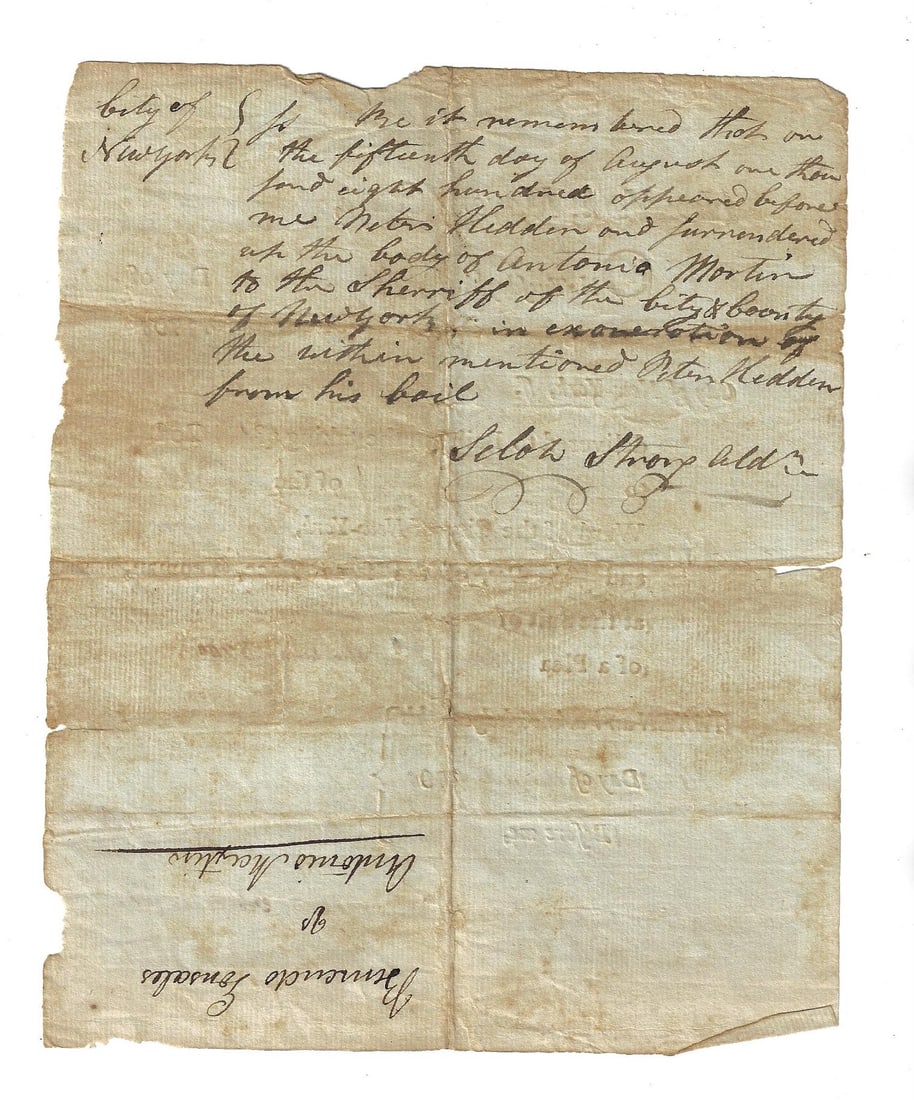 City of } ss Be it remembered that on
New York } the fifteenth day of August one thou
sand eight hundred appeared before
me Peter Hedden and surrendered
up the body of Antonio Martin
to the Sherriff of the City & County
of New York, in exoneration of
the within mentioned Peter Hedden
from his bail
Selah Strong Aldn
of a Plea
Day of
Before me
Antonio Martin
vs
Gonsales